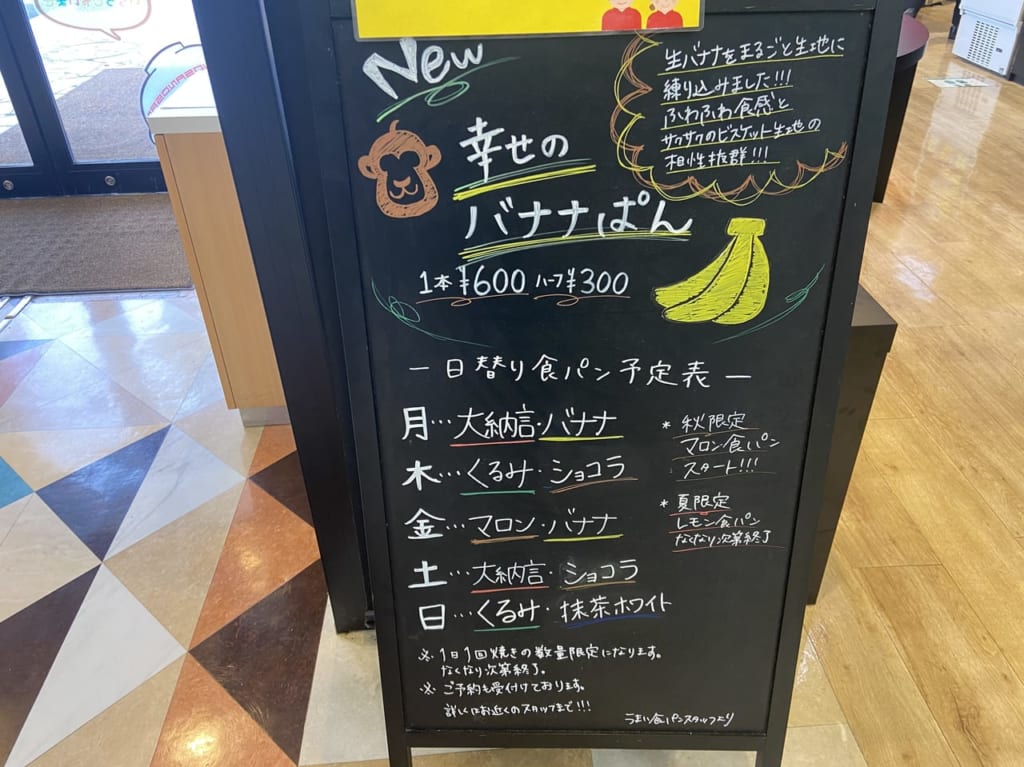 New
幸せの
バナナぱん
1本¥600 ハーフ¥300
生バナナをまるごと生地に
練り込みました!!!
ふわふわ食感と
サクサクのビスケット生地の
相性抜群!!!
ー日替り食パン予定表ー
月…大納言・バナナ
木…くるみ・ショコラ
金…マロン・バナナ
土…大納言・ショコラ
日…くるみ・抹茶ホワイト
* 秋限定
マロン食パン
スタート!!!
* 夏限定
レモン食パン
なくなり次第終了
※1日1回焼きの数量限定になります。
なくなり次第終了。
※ご予約も受付けております。
詳しくはお近くのスタッフまで!!!
うまい食パンスタッフより